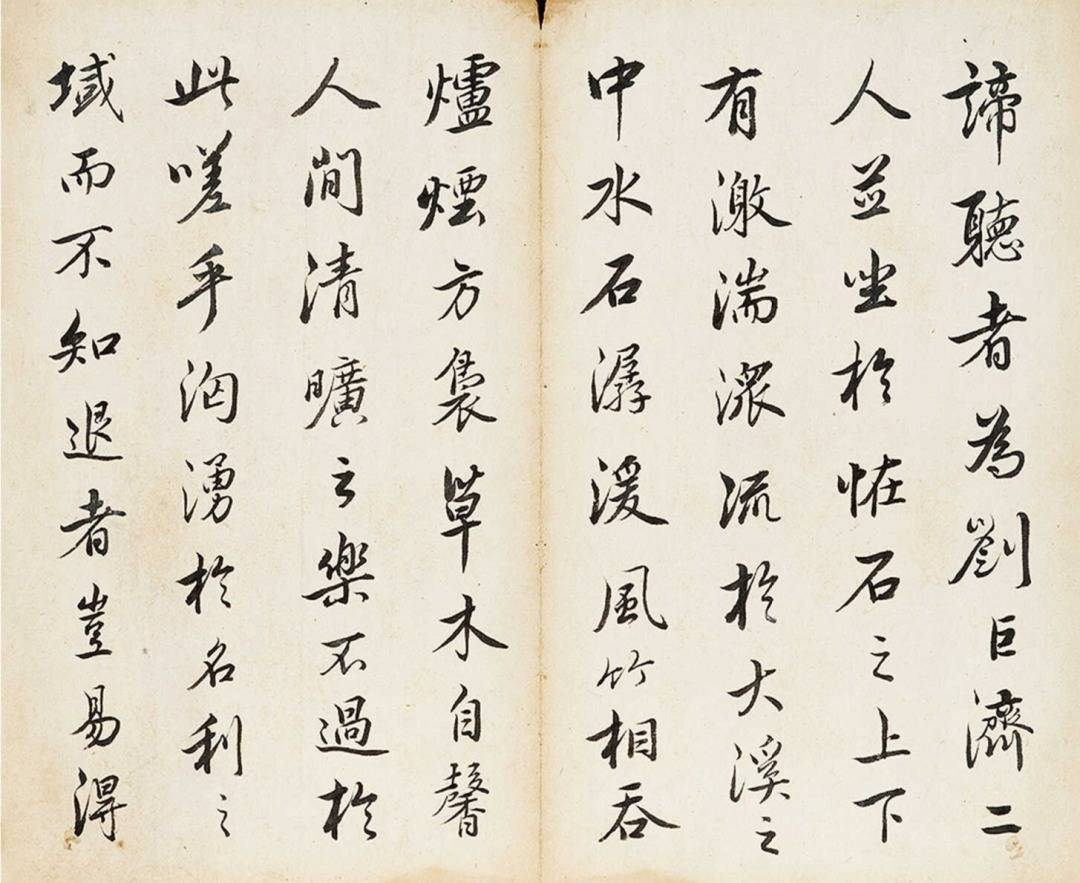 諦聽者為劉巨濟二
人並坐於怪石之上下
有激湍潨流於大溪之
中水石潺湲風竹相吞
爐煙方裊草木自馨
人間清曠之樂不過於
此嗟乎洶湧於名利之
域而不知退者豈易得